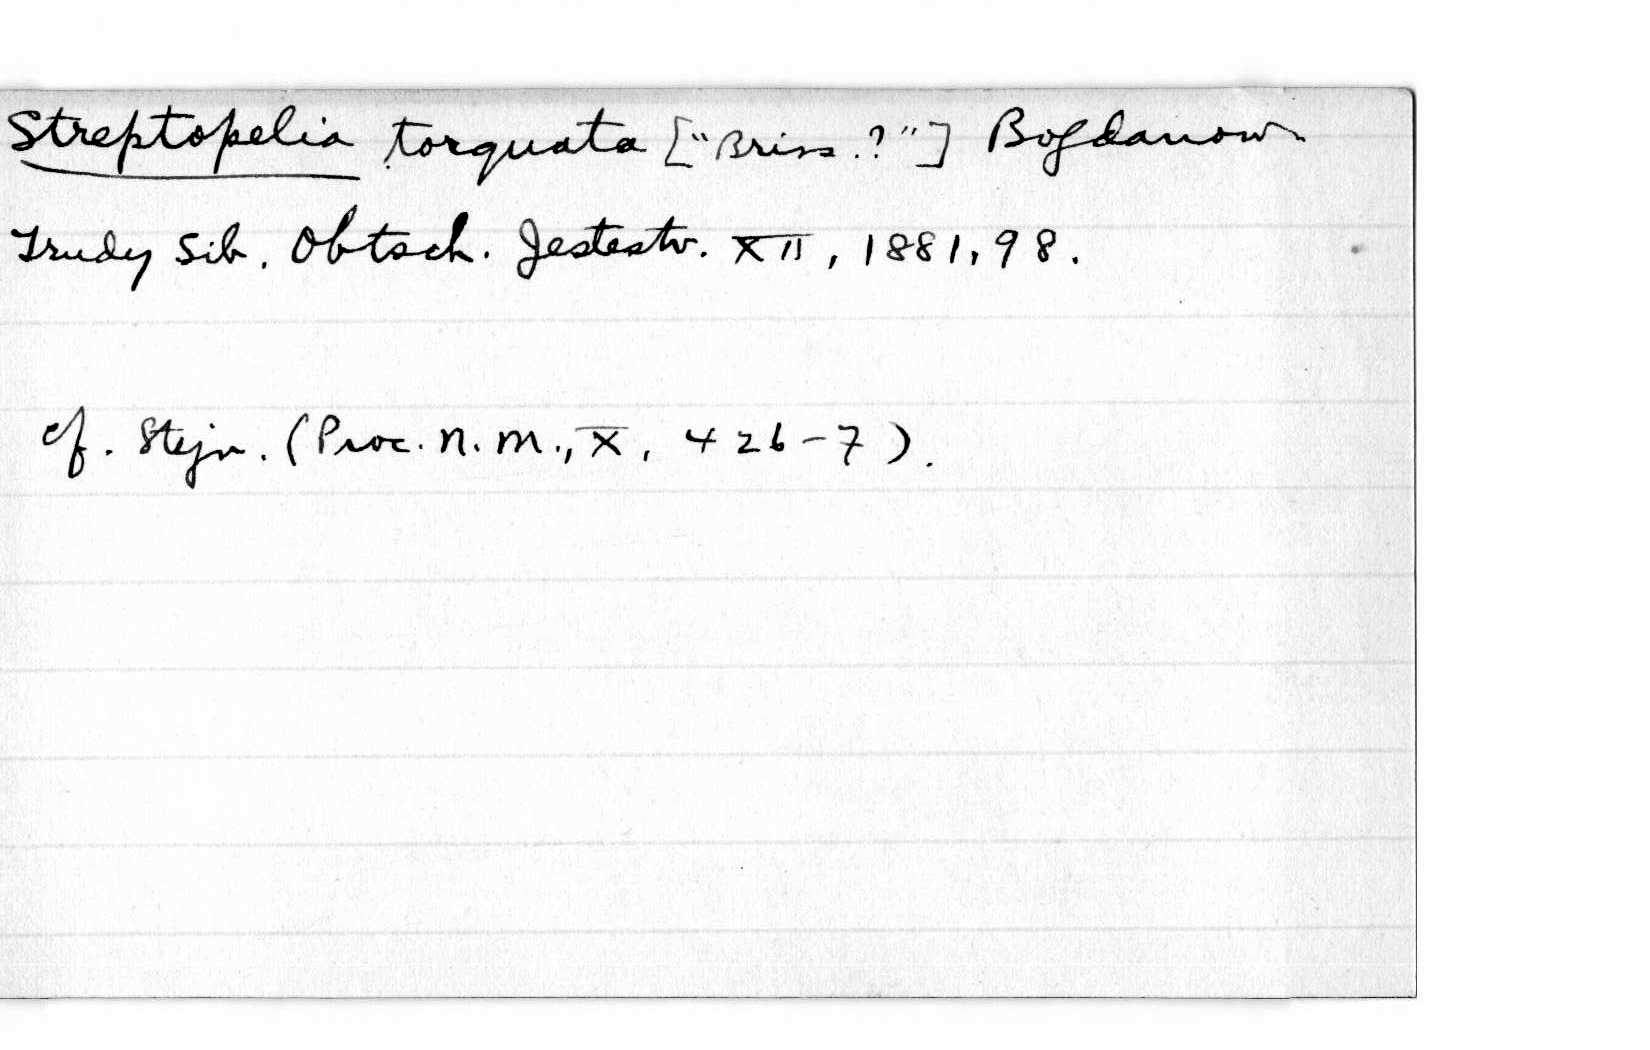 Streptopelia torquata ["Briss.?"] Bogdanow
Trudy Sib. Obtsch. Jestestv. XII, 1881, 98.
cf. Stejn. (Proc. N. M., X, 426-7).